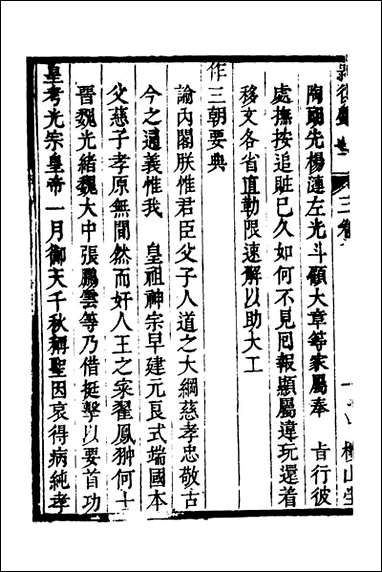 陶朗先楊漣左光斗顧大章等家屬奉　旨行彼
處撫按追贓已久如何不見回報顯屬違玩還着
移文各省直勒限速解以助大工
作三朝要典
諭內閣朕惟君臣父子人道之大綱慈孝忠敬古
今之通義惟我　皇祖神宗早建元良式端國本
父慈子孝原無間然而奸人王之寀翟鳳翀何士
晋魏光緒魏大中張鵬雲等乃借挺擊以要首功
皇考光宗皇帝一月御天千秋稱聖因哀得病純孝